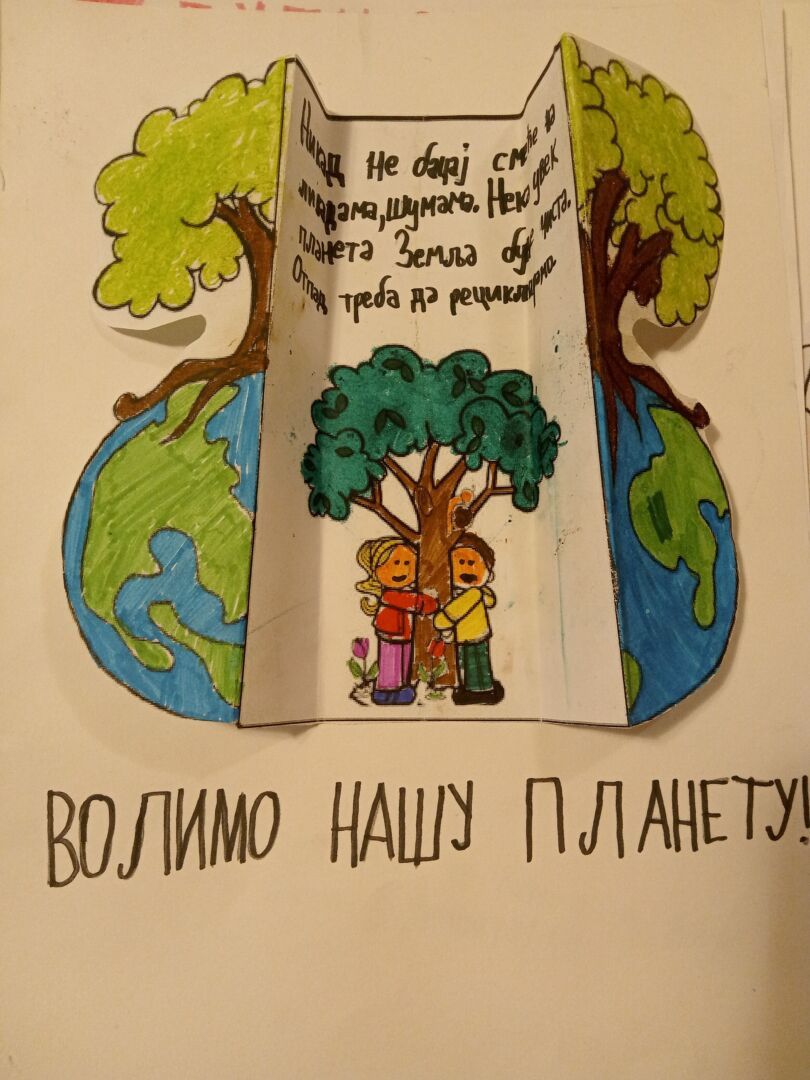 Никад не бацај смеће на
ливадама, шумама. Нека увек
планета Земља буде чиста.
Отпад треба да рециклирано.
ВОЛИМО НАШУ ПЛАНЕТУ!